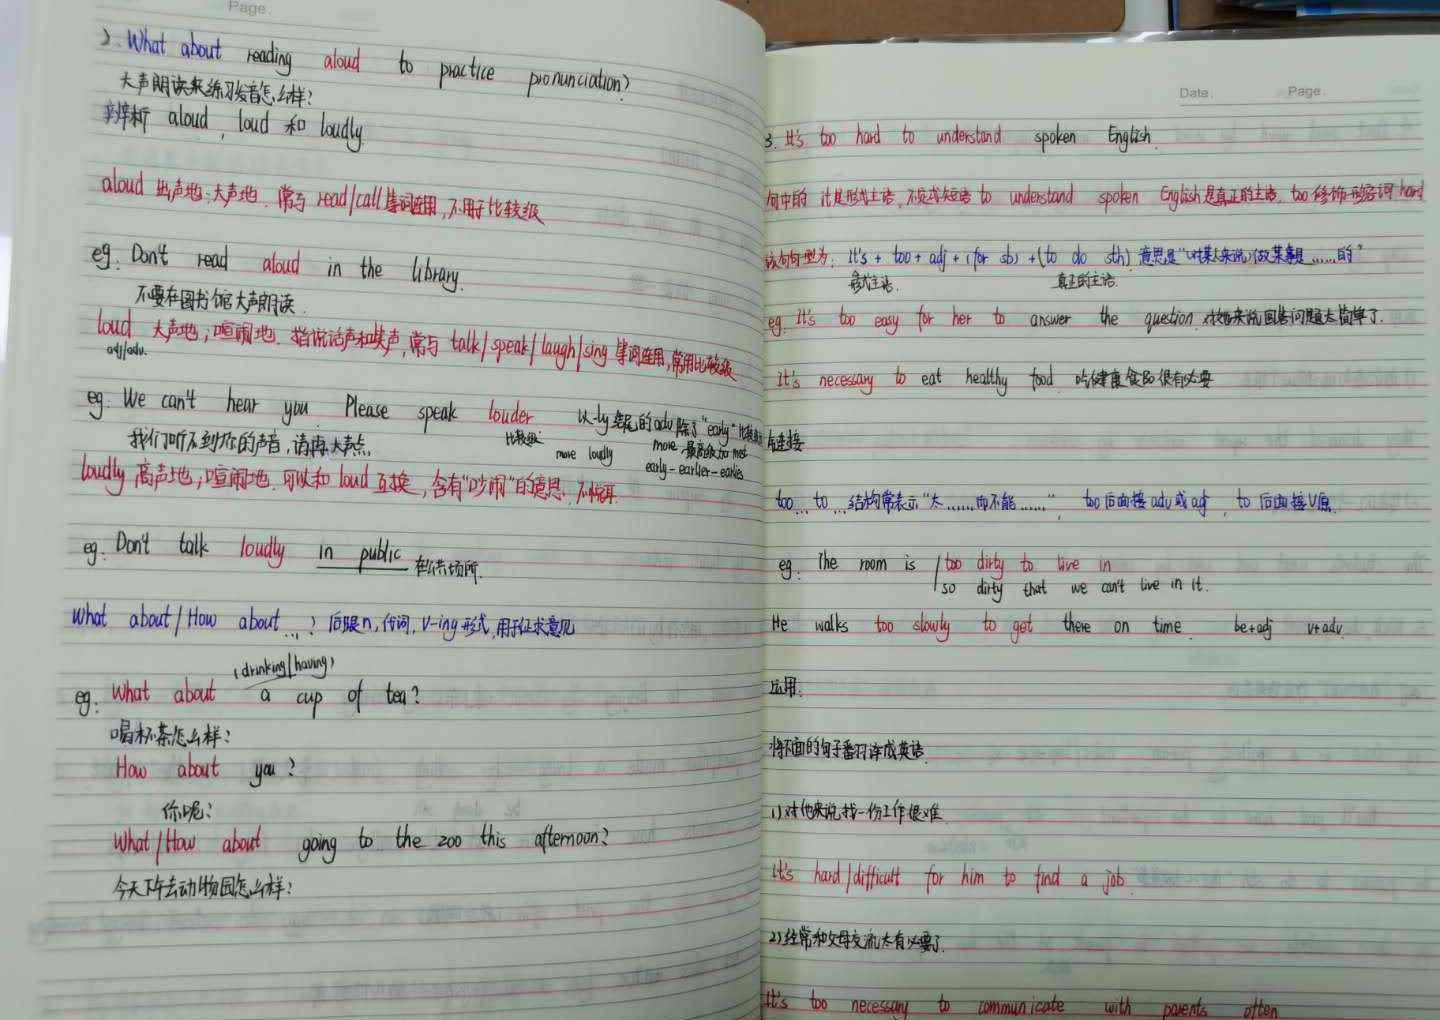 Page.
2. What about reading aloud to practice pronunciation?
大声朗读来练习发音怎么样?
辨析 aloud, loud 和 loudly.
aloud 出声地; 大声地. 常与 read/call 等词连用, 不用于比较级
eg. Don't read aloud in the library.
不要在图书馆大声朗读.
loud 大声地; 喧闹地. 指说话声和笑声, 常与 talk/speak/laugh/sing 等词连用, 常用比较级
adj/adv.
eg. We can't hear you. Please speak louder 以-ly结尾的adv除了"early"比较级
我们听不到你的声音, 请再大声点. 比较级 more loudly more 最高级加 most
early-earlier-earlies
loudly 高声地; 喧闹地. 可以和 loud 互换, 含有"吵闹"的意思, 不悦耳
eg. Don't talk loudly in public 在公共场所.
What about/How about...? 后跟n, 代词, V-ing 形式, 用于征求意见
(drinking/having)
eg: What about a cup of tea?
喝杯茶怎么样?
How about you?
你呢?
What/How about going to the zoo this afternoon?
今天下午去动物园怎么样?
Date. Page.
3. It's too hard to understand spoken English.
句中的 it是形式主语, 不定式短语 to understand spoken English是真正的主语. too 修饰形容词 hard
该句句型为: It's + too + adj + (for sb) + (to do sth) 意思是"(对某人来说)做某事是......的"
形式主语. 真正的主语.
eg. It's too easy for her to answer the question. 对她来说回答问题太简单了.
It's necessary to eat healthy food. 吃健康食品很有必要
too... to...结构常表示"太......而不能......", too后面接adv或adj, to 后面接V原.
eg. The room is too dirty to live in
so dirty that we can't live in it.
He walks too slowly to get there on time. be+adj v+adv.
应用.
将下面的句子翻译成英语.
1) 对他来说找一份工作很难.
It's hard/difficult for him to find a job.
2) 经常和父母交流太有必要了.
It's too necessary to communicate with parents often